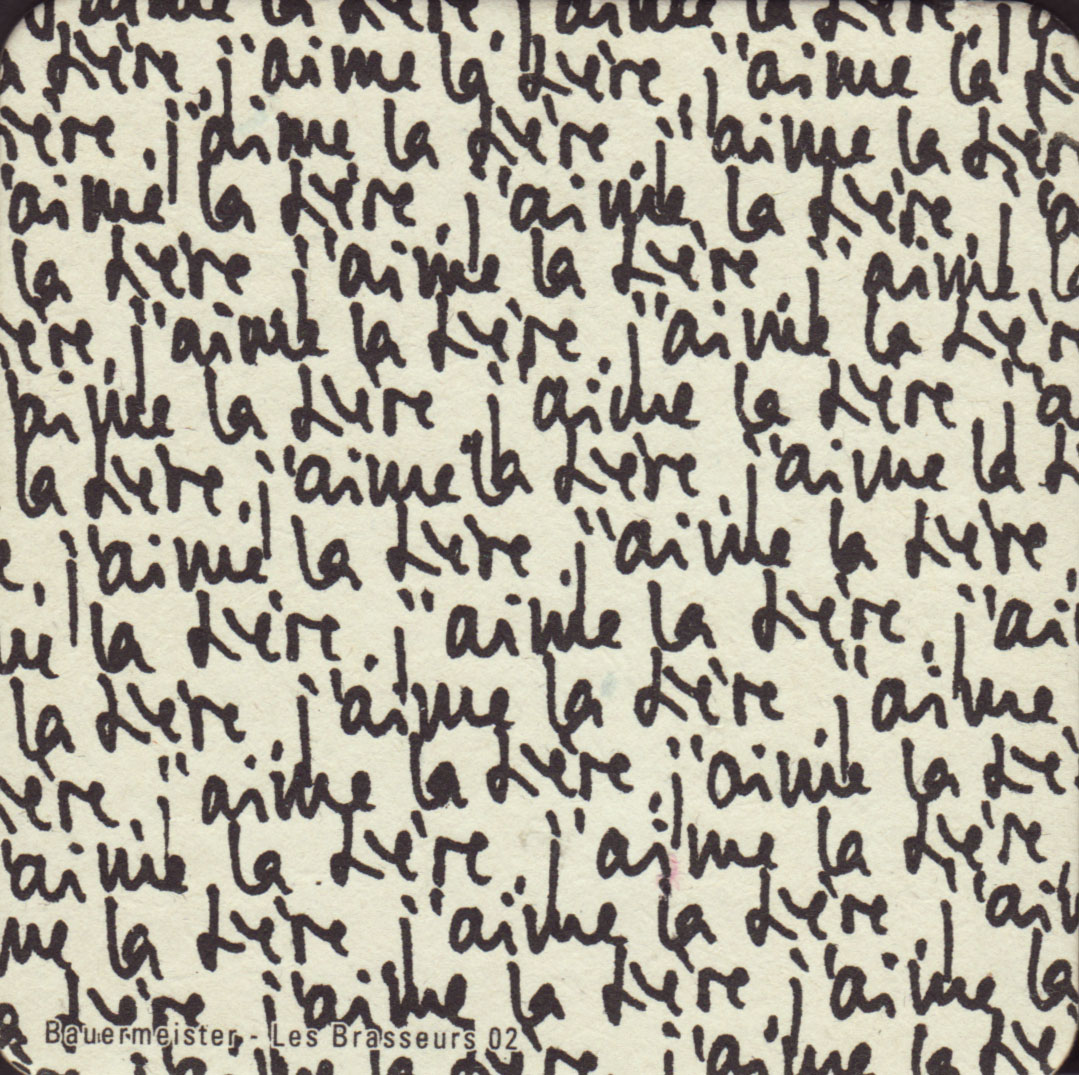 j'aime la bière, j'aime la bière, j'a
a bière, j'aime la bière, j'aime la b
ière, j'aime la bière, j'aime la bièr
'aime la bière, j'aime la bière, j'a
la bière, j'aime la bière, j'aime la
ière, j'aime la bière, j'aime la bièr
'aime la bière, j'aime la bière, j'a
la bière, j'aime la bière, j'aime la b
e, j'aime la bière, j'aime la bière,
me la bière, j'aime la bière, j'ai
la bière, j'aime la bière, j'aime
ière, j'aime la bière, j'aime la biè
'aime la bière, j'aime la bière,
me la bière, j'aime la bière, j'aim
a bière, j'aime la bière, j'aime la
Bauermeister - Les Brasseurs 02